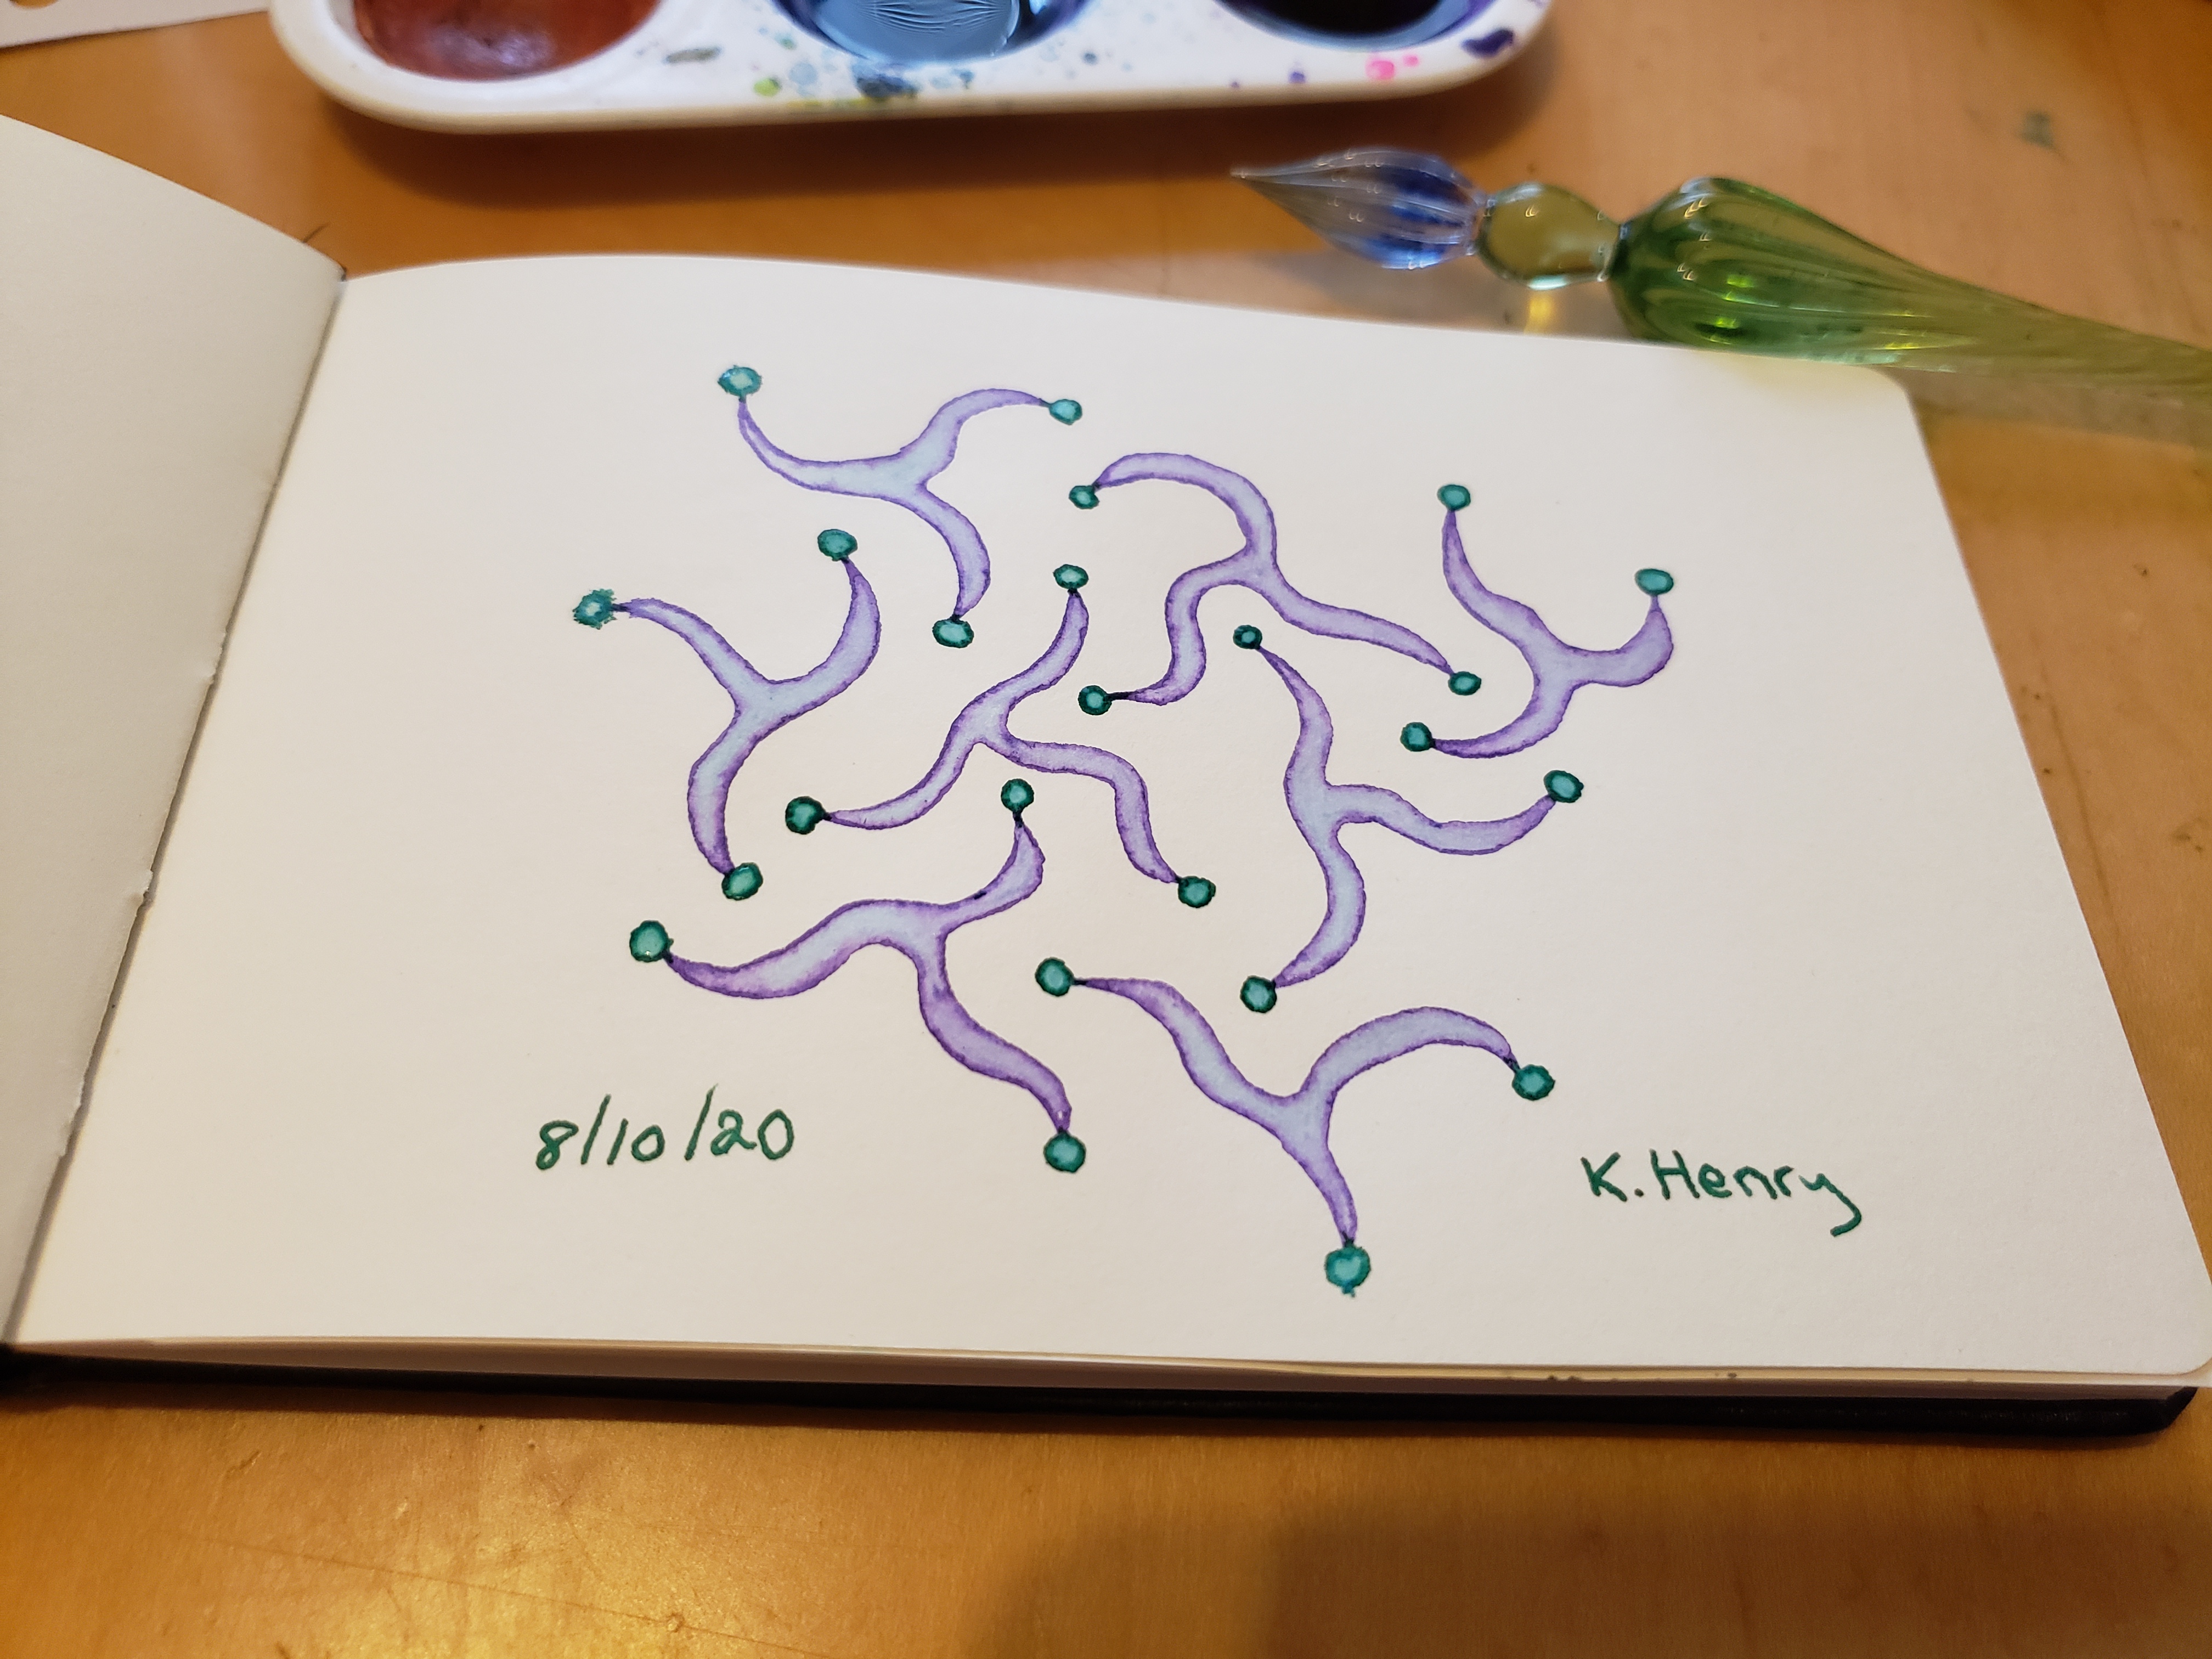 8/10/20
K. Henry